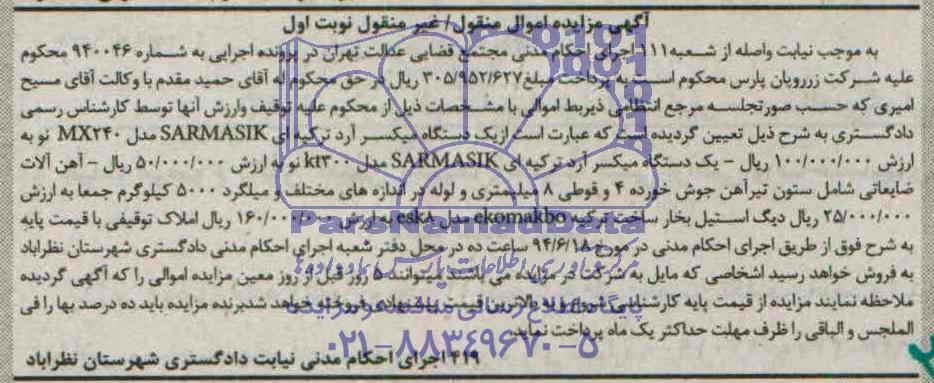 آگهی مزایده اموال منقول/ غیر منقول نوبت اول
به موجب نیابت واصله از شعبه ۱۱۱ اجرای احکام مدنی مجتمع قضایی عدالت تهران در پرونده اجرایی به شماره ۹۴۰۰۴۶ محکوم
علیه شرکت زررویان پارس محکوم است به پرداخت مبلغ ۳۰۵/۹۵۲/۶۲۷ ریال در حق محکوم له آقای حمید مقدم با وکالت آقای مسیح
امیری که حسب صورتجلسه مرجع انتظامی ذیربط اموالی با مشخصات ذیل از محکوم علیه توقیف وارزش آنها توسط کارشناس رسمی
دادگستری به شرح ذیل تعیین گردیده است که عبارت است ازیک دستگاه میکسر آرد ترکیه ای SARMASIK مدل MX۲۴۰ نو به
ارزش ۱۰۰/۰۰۰/۰۰۰ ریال – یک دستگاه میکسر آرد ترکیه ای SARMASIK مدل kt۳۰۰ نو به ارزش ۵۰/۰۰۰/۰۰۰ ریال – آهن آلات
ضایعاتی شامل ستون تیرآهن جوش خورده ۴ و قوطی ۸ میلیمتری و لوله در اندازه های مختلف و میلگرد ۵۰۰۰ کیلوگرم جمعا به ارزش
۲۵/۰۰۰/۰۰۰ ریال دیگ استیل بخار ساخت ترکیه ekomakbo مدل esk۸ به ارزش ۱۶۰/۰۰۰/۰۰۰ ریال املاک توقیفی با قیمت پایه
به شرح فوق از طریق اجرای احکام مدنی در مورخ ۹۴/۶/۱۸ ساعت ده در محل دفتر شعبه اجرای احکام مدنی دادگستری شهرستان نظراباد
به فروش خواهد رسید اشخاصی که مایل به شرکت در مزایده می باشند میتوانند ۵ روز قبل از روز معین مزایده اموالی را که آگهی گردیده
ملاحظه نمایند مزایده از قیمت پایه کارشناسی شروع و به بالاترین قیمت پیشنهادی فروخته خواهد شد برنده مزایده باید ده درصد بها را فی
المجلس و الباقی را ظرف مهلت حداکثر یک ماه پرداخت نماید.
۴۱۹ اجرای احکام مدنی نیابت دادگستری شهرستان نظراباد
ParsNamadData
مرکز فرآوری اطلاعات پارس نماد داده ها
پایگاه اطلاع رسانی مناقصه و مزایده
۰۲۱-۸۸۳۴۹۶۷۰-۵